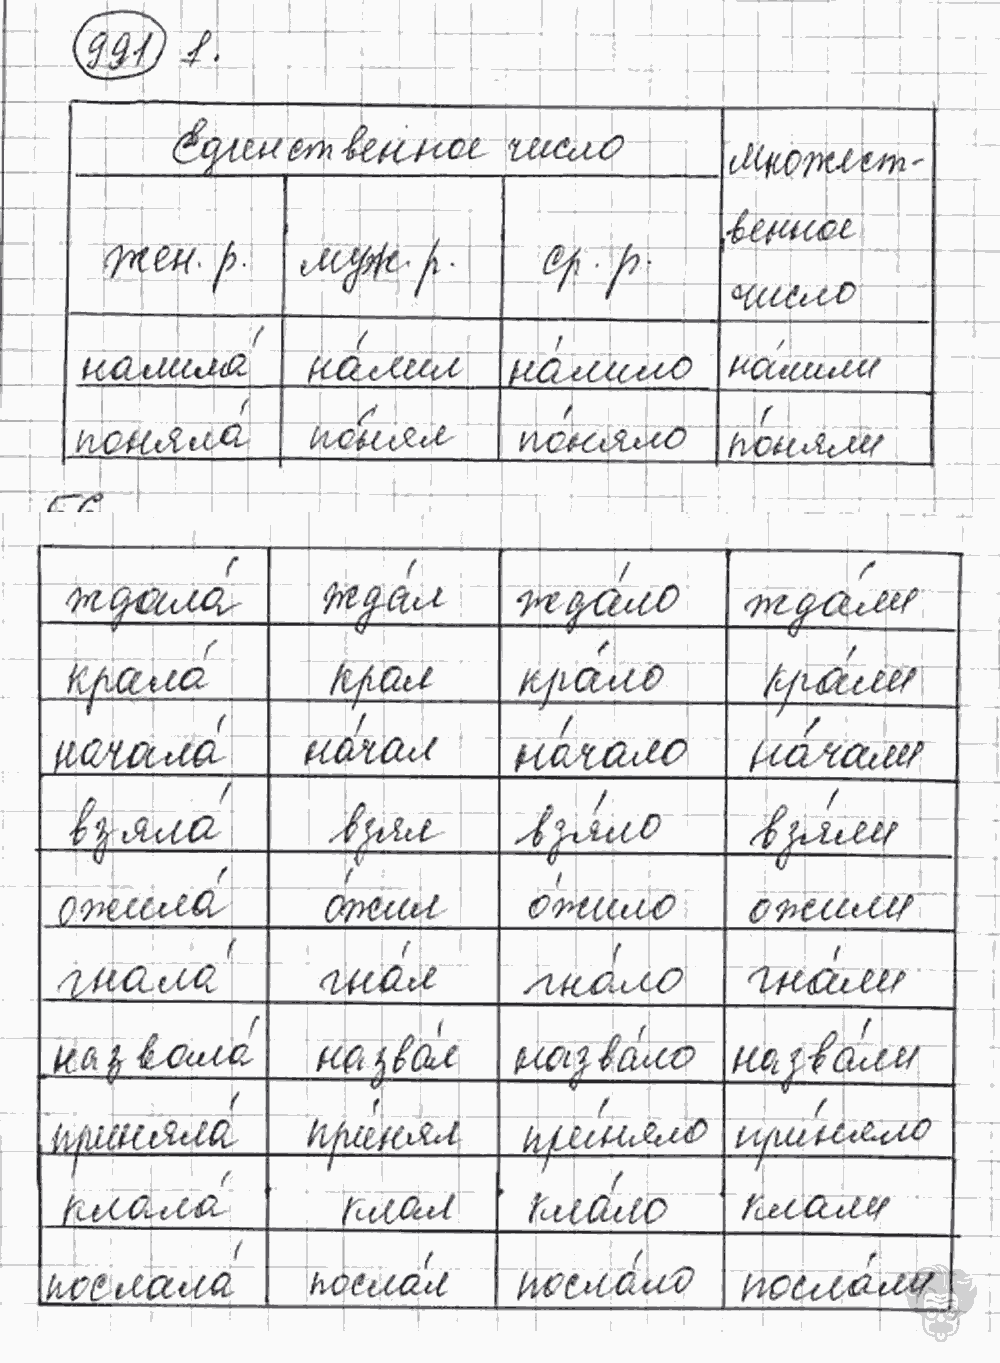 991 1.
Единственное число
Множест-
венное
число
жен. р. муж. р. ср. р.
налила́ на́лил на́лило на́лили
поняла́ по́нял по́няло по́няли
ждала́ жда́л жда́ло жда́ли
крала́ крал кра́ло кра́ли
начала́ на́чал на́чало на́чали
взяла́ взял взя́ло взя́ли
ожила́ о́жил о́жило ожили
гнала́ гна́л гна́ло гна́ли
назвала́ назва́л назва́ло назва́ли
приняла́ при́нял при́няло при́няло
клала́ клал кла́ло клали
послала́ посла́л посла́ло посла́ли